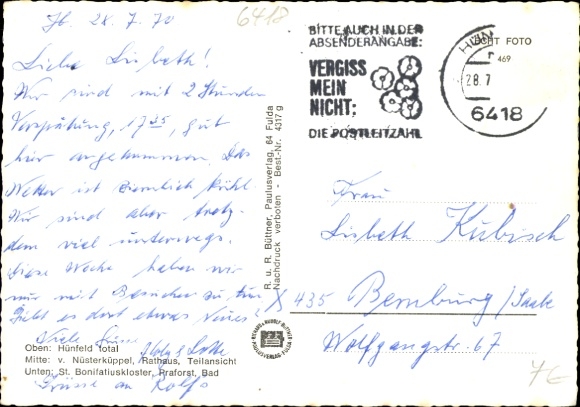 Hf. 28. 7. 70
Liebe Lisbeth!
Wir sind mit 2 Stunden
Verspätung, 17 35, gut
hier angekommen. Das
Wetter ist ziemlich kühl.
Wir sind aber trotz-
dem viel unterwegs.
Diese Woche haben wir
nur mit Besuchen zu tun
Gibt es dort etwas Neues?
Viele Grüsse
Lotte
Grüsse an Rolf
Oben: Hünfeld total
Mitte: v. Nüsterküppel, Rathaus, Teilansicht
Unten: St. Bonifatiuskloster, Praforst, Bad
R. u. R. Büttner, Paulusverlag, 64 Fulda
Nachdruck verboten - Best.-Nr. 4317 g
6418
BITTE AUCH IN DER
ABSENDERANGABE:
VERGISS
MEIN
NICHT:
DIE POSTLEITZAHL
HÜN
28.7
6418
ECHT FOTO
469
Frau
Lisbeth Kubisch
X 435 Bernburg/Saale
Wolfgangstr. 67